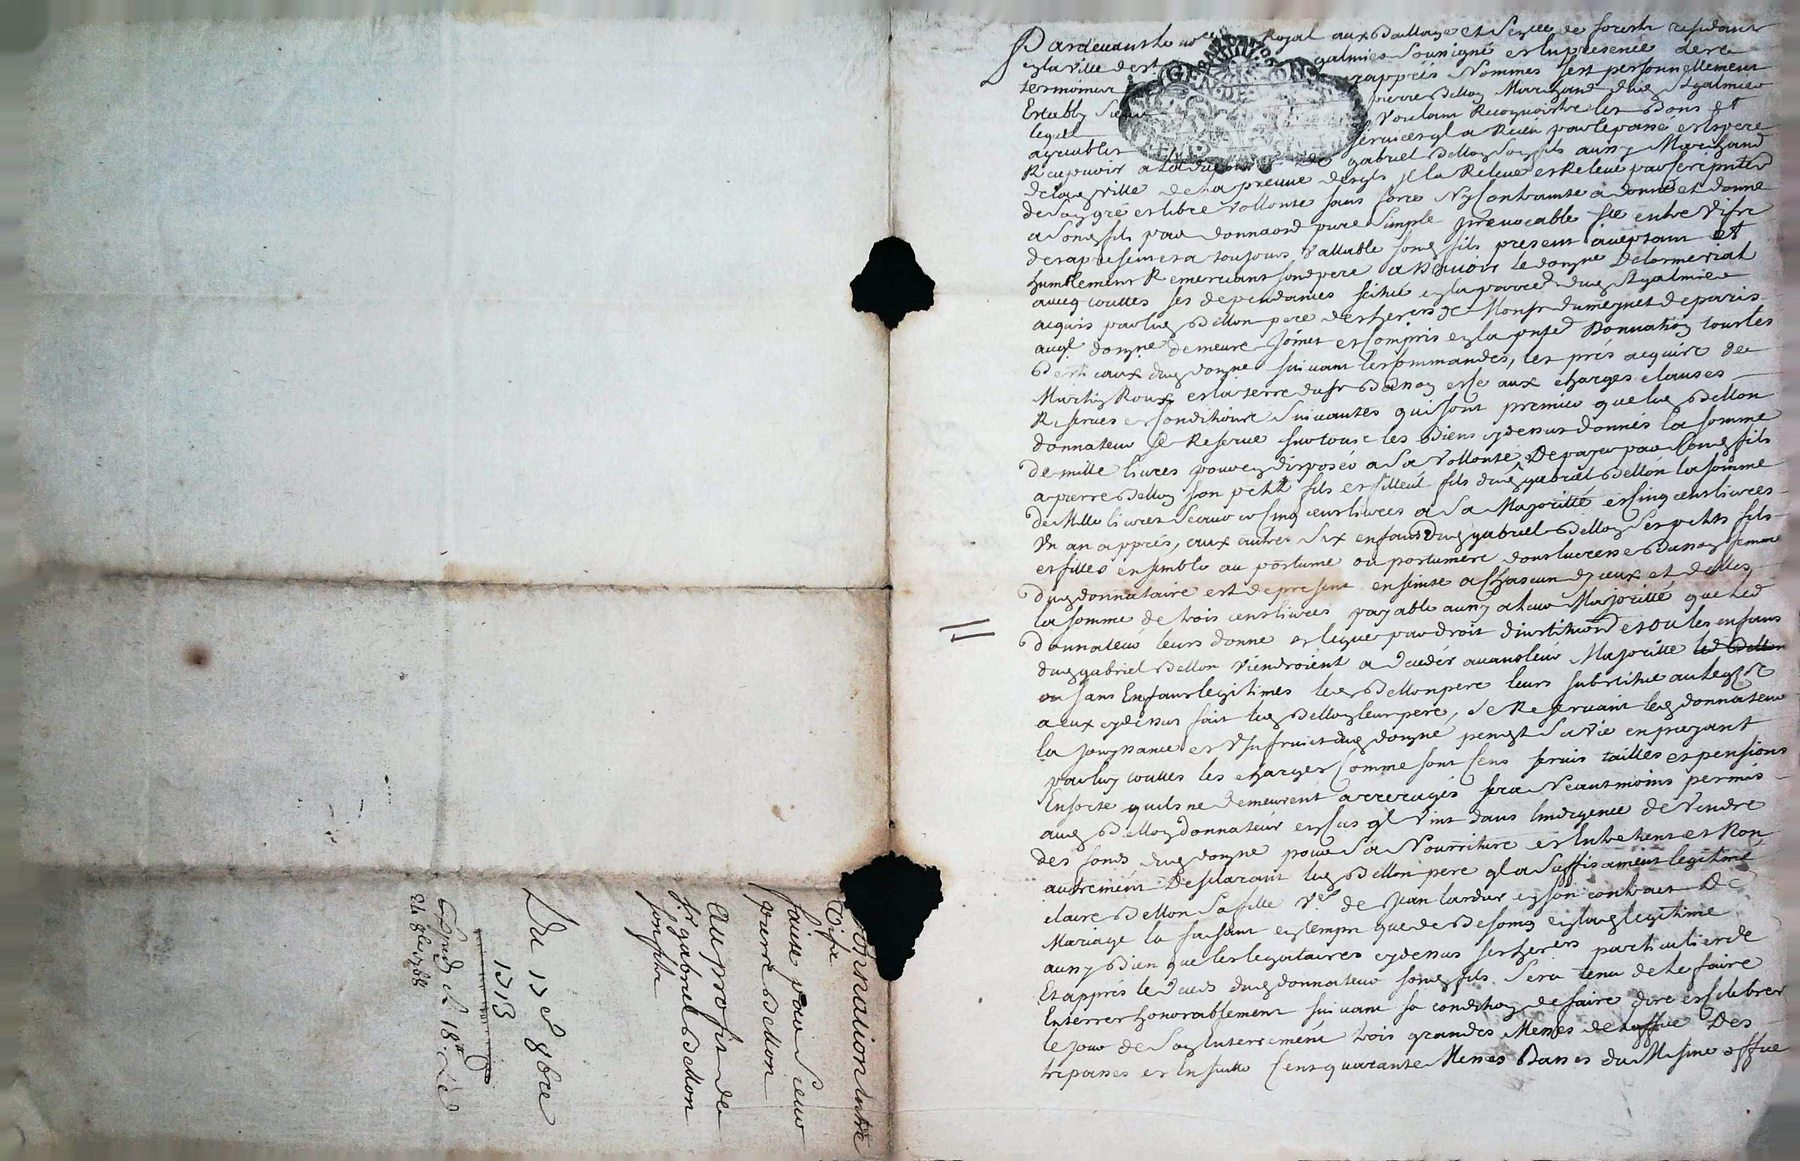 Pardevant le no Royal aux Bailliage et de forestz residant
en la ville de st galmier soussigné et en presence de ce
tesmoins apprés Nommes sest personnellement
Estably Sieur pierre Bellon Marchand dud St galmier
lequel Voulant Recognoistre les Bons et
agreables services ql a Receu par le passé et espere
Recepvoir a gabriel Bellon son fils aussy Marchand
de lad ville de la preuve desqls jl la Releve et Releve par ses ptes
de son gré et libre vollonte sans force Ny Contrainte a donné et donne
a sond fils par donnaon pure simple jrrevocable fte entre vifz
des a presiens et a toujours Vallable sond fils present aceptant et
humblement Remerciant sond pere a scavoir le domne Delormerial
avecq touttes ses dependances scitué en la parroe dud St galmier
acquis par led Bellon pere des herers de Monsr dumeynet de paris
auql domne demeure Joinct et Compris en la pnte Donnation tous les
Bestiaux dud domne suivant les commandes, les prés acquire de
Martin Roux et la terre du sr Banon et ce aux charges clauses
Reserves et Conditions Suivantes qui sont premier que led Bellon
donnateur se Reserve sur tous les Biens cydessus donnés la somme
de mille livres pour en disposer a Sa vollonte De payer par Sond fils
a pierre Bellon son petit fils et filleul fils dud gabriel Bellon la somme
de Mille livres Scavoir Cinq cens livres a Sa Majoritté et Cinq cens livres
Un an apprés, aux autres Six enfans dud gabriel Bellon Ses petits fils
et filles ensemble au postume ou postumere dont lucresse Banon femme
dud donnataire est de present enseinte a Chascun deux et delles
la somme de trois cens livres payable aussy a leur Majoritté que led
donnateur leurs donne et legue par droit dinstitution et ou les enfans
dud gabriel Bellon viendroient a deceder avant leur Majoritté led Bellon
ou sans Enfans legitimes led Bellon pere leurs substitue au legs
a eux cydessus fait led Bellon leur pere, se Reservant led donnateur
la Jouyssance et Usufruict dud domne pendt Sa Vie en payant
par luy touttes les charges Comme sont Cens servis tailles et pensions
Ensorte quils ne demeurent arreragés sera Neantmoins permis
aud Bellon donnateur et Cas ql vint dans lindigence de Vendre
des fonds dud domne pour Sa Nourriture et Entretient et Non
autrement Desclarant led Bellon pere ql a Suffisament legitimé
claire Bellon Sa fille ve de Jean lardier en son contract De
Mariage la faisant en tempt que de Besoins en lad legitime
aussy Bien que les legataires cydessus ses herers particuliers
Et apprés le deces dud donnateur sond fils Sera tenu de le faire
Enterrer honorablement suivant sa condition de faire dire et Celebrer
le jour de Son Enterrement trois grandes Messes de loffice Des
trepasses et Ensuitte Cent quarante Messes Basses du Mesme office
Donnaiion entre
vifz
faitte par Sieur
pierre Bellon
Au proffit de
sr gabriel Bellon
son filz
Du 17e 8bre
1713